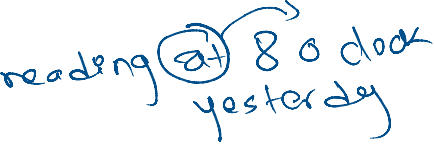 reading at 8 o clock
yesterdy